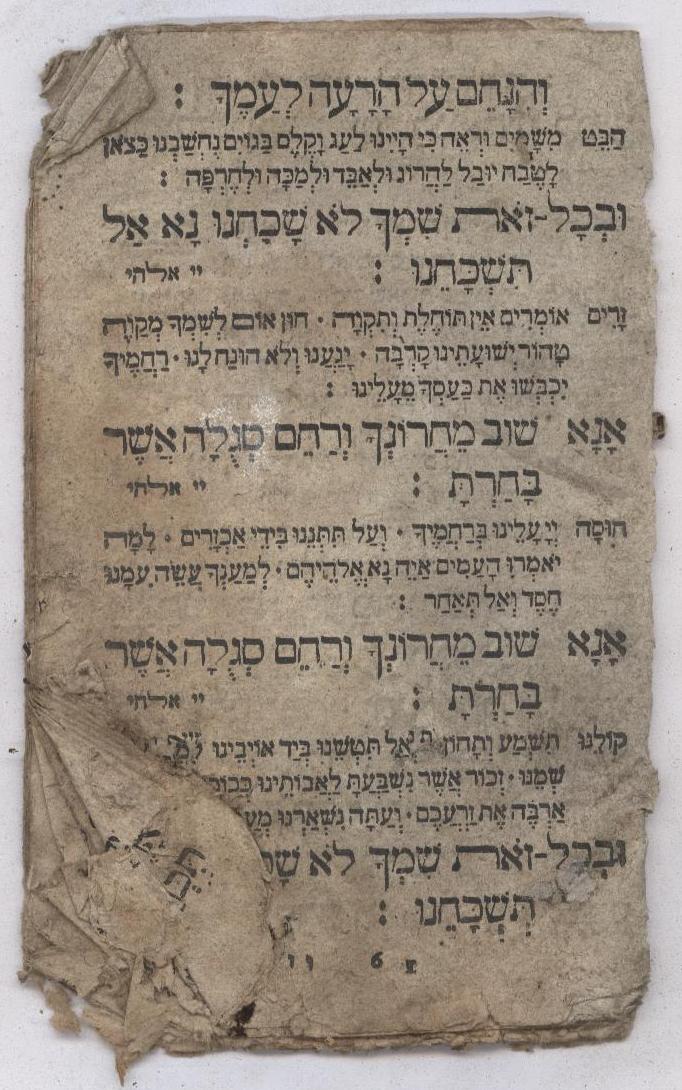 וְהִנָּחֵם עַל הָרָעָה לְעַמֶּךָ :
הַבֵּט מִשָּׁמַיִם וּרְאֵה כִּי הָיִינוּ לַעַג וָקֶלֶס בַּגּוֹיִם נֶחְשַׁבְנוּ כַּצֹּאן
לָטֶבַח יוּבַל לַהֲרוֹג וּלְאַבֵּד וּלְמַכָּה וּלְחֶרְפָּה :
וּבְכָל-זֹאת שִׁמְךָ לֹא שָׁכָחְנוּ נָא אַל
תִּשְׁכָּחֵנוּ : יי אלהי
זָרִים אוֹמְרִים אֵין תּוֹחֶלֶת וְתִקְוָה · חוֹן אוֹם לְשִׁמְךָ מְקַוֶּה
טָהוֹר יְשׁוּעָתֵינוּ קָרְבָה · יָגַעְנוּ וְלֹא הוּנַח לָנוּ · רַחֲמֶיךָ
יִכְבְּשׁוּ אֶת כַּעַסְךָ מֵעָלֵינוּ :
אָנָא שׁוּב מֵחֲרוֹנְךָ וְרַחֵם סְגֻלָּה אֲשֶׁר
בָּחַרְתָּ : יי אלהי
חוּסָה יְיָ עָלֵינוּ בְּרַחֲמֶיךָ · וְעַל תִּתְּנֵנוּ בִּידֵי אַכְזָרִים · לָמָּה
יֹאמְרוּ הָעַמִּים אַיֵּה נָא אֱלֹהֵיהֶם · לְמַעַנְךָ עֲשֵׂה עִמָּנוּ
חֶסֶד וְאַל תְּאַחַר :
אָנָא שׁוּב מֵחֲרוֹנְךָ וְרַחֵם סְגֻלָּה אֲשֶׁר
בָּחַרְתָּ : יי אלהי
קוֹלֵנוּ תִשְׁמַע וְתָחוֹן וְאַל תִּטְּשֵׁנוּ בְּיַד אוֹיְבֵינוּ
שְׁמֵנוּ · זְכוֹר אֲשֶׁר נִשְׁבַּעְתָּ לַאֲבוֹתֵינוּ
אַרְבֶּה אֶת זַרְעֲכֶם · וְעַתָּה נִשְׁאַרְנוּ
וּבְכָל-זֹאת שִׁמְךָ לֹא
תִּשְׁכָּחֵנוּ :
6